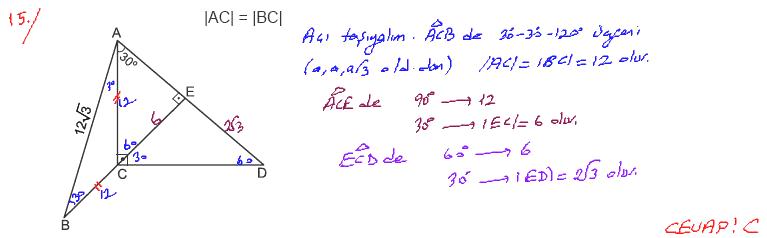 15.
|AC| = |BC|
Açı taşıyalım. ACB de 30-30-120° üçgeni
(a, a, a√3 old.dan) |AC| = |BC| = 12 olur.
ACE de 90° → 12
30° → |EC| = 6 olur.
ECD de 60° → 6
30° → |ED| = 2√3 olur.
A
30°
30
12
E
12√3
6
2√3
60
30
60
C
D
30
12
B
CEVAP: C